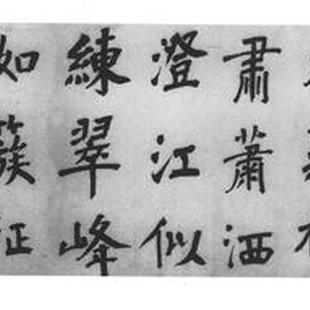 肅蕭洒
澄江似
練翠峰
如簇征